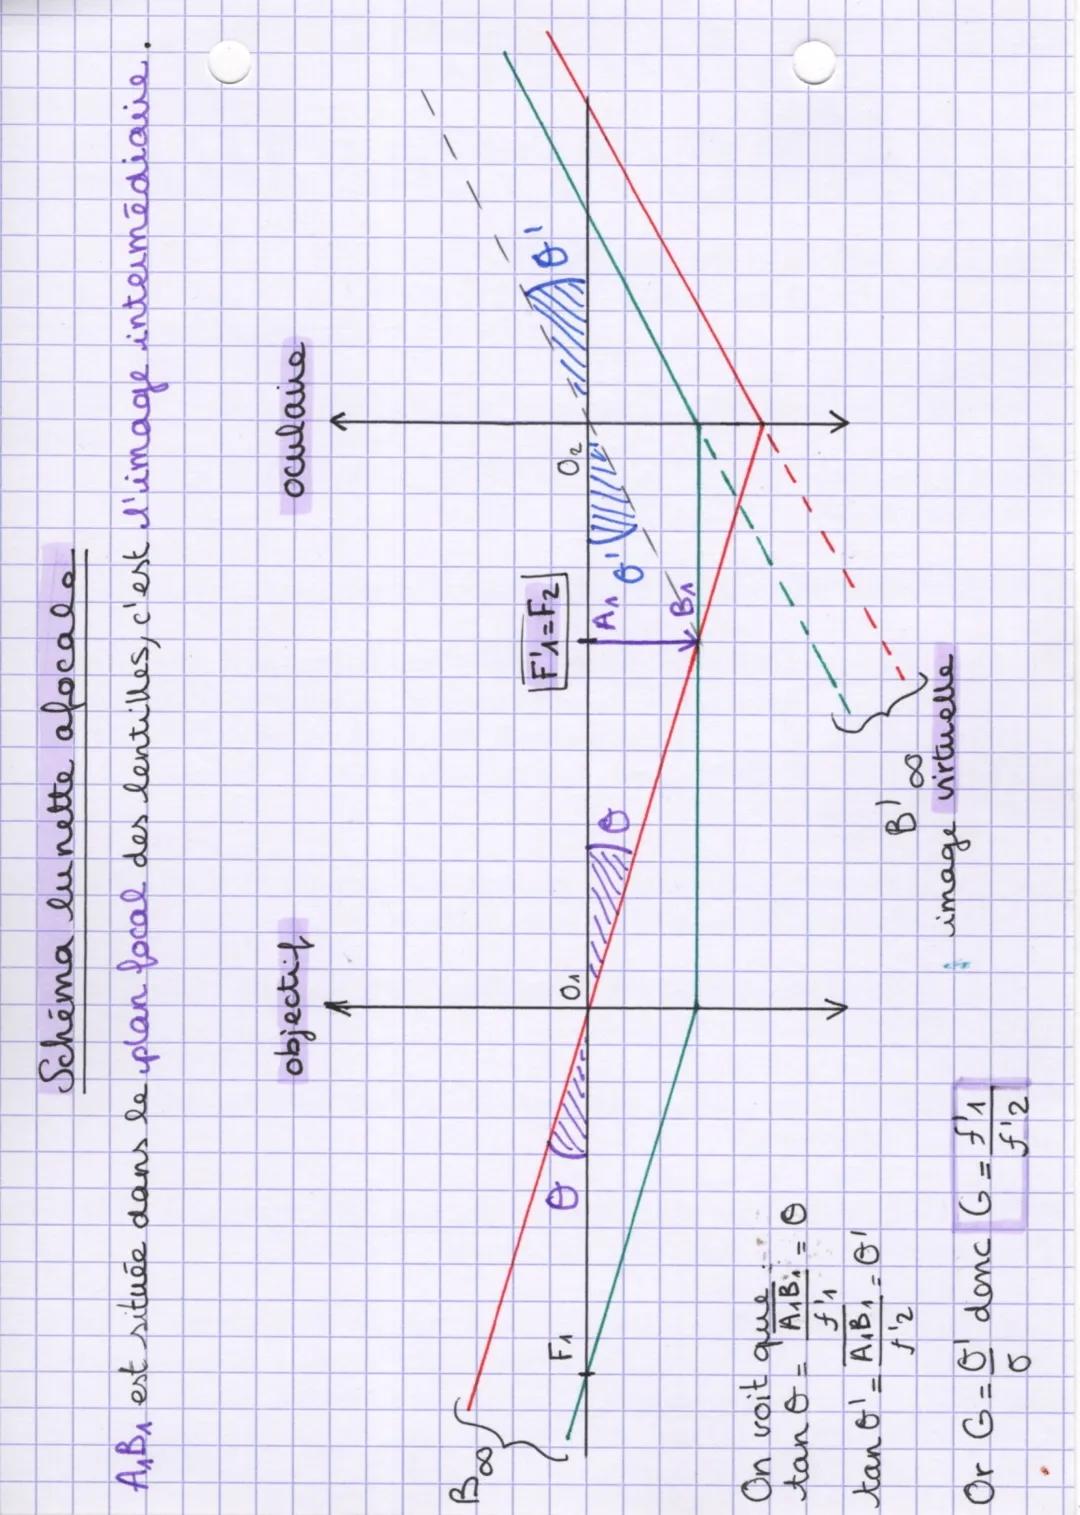 Schéma lunette afocale
A₁B₁ est située dans le plan focal des lentilles, c'est l'image intermédiaire.
objectif
oculaire
B∞
F₁
θ
O₁
θ
F'₁=F₂
A₁
B₁
θ'
O₂
θ'
B'∞
image virtuelle
On voit que :
tan θ = A₁B₁/f'₁ = θ
tan θ' = A₁B₁/f'₂ = θ'
Or G = θ'/θ donc G = f'₁/f'₂